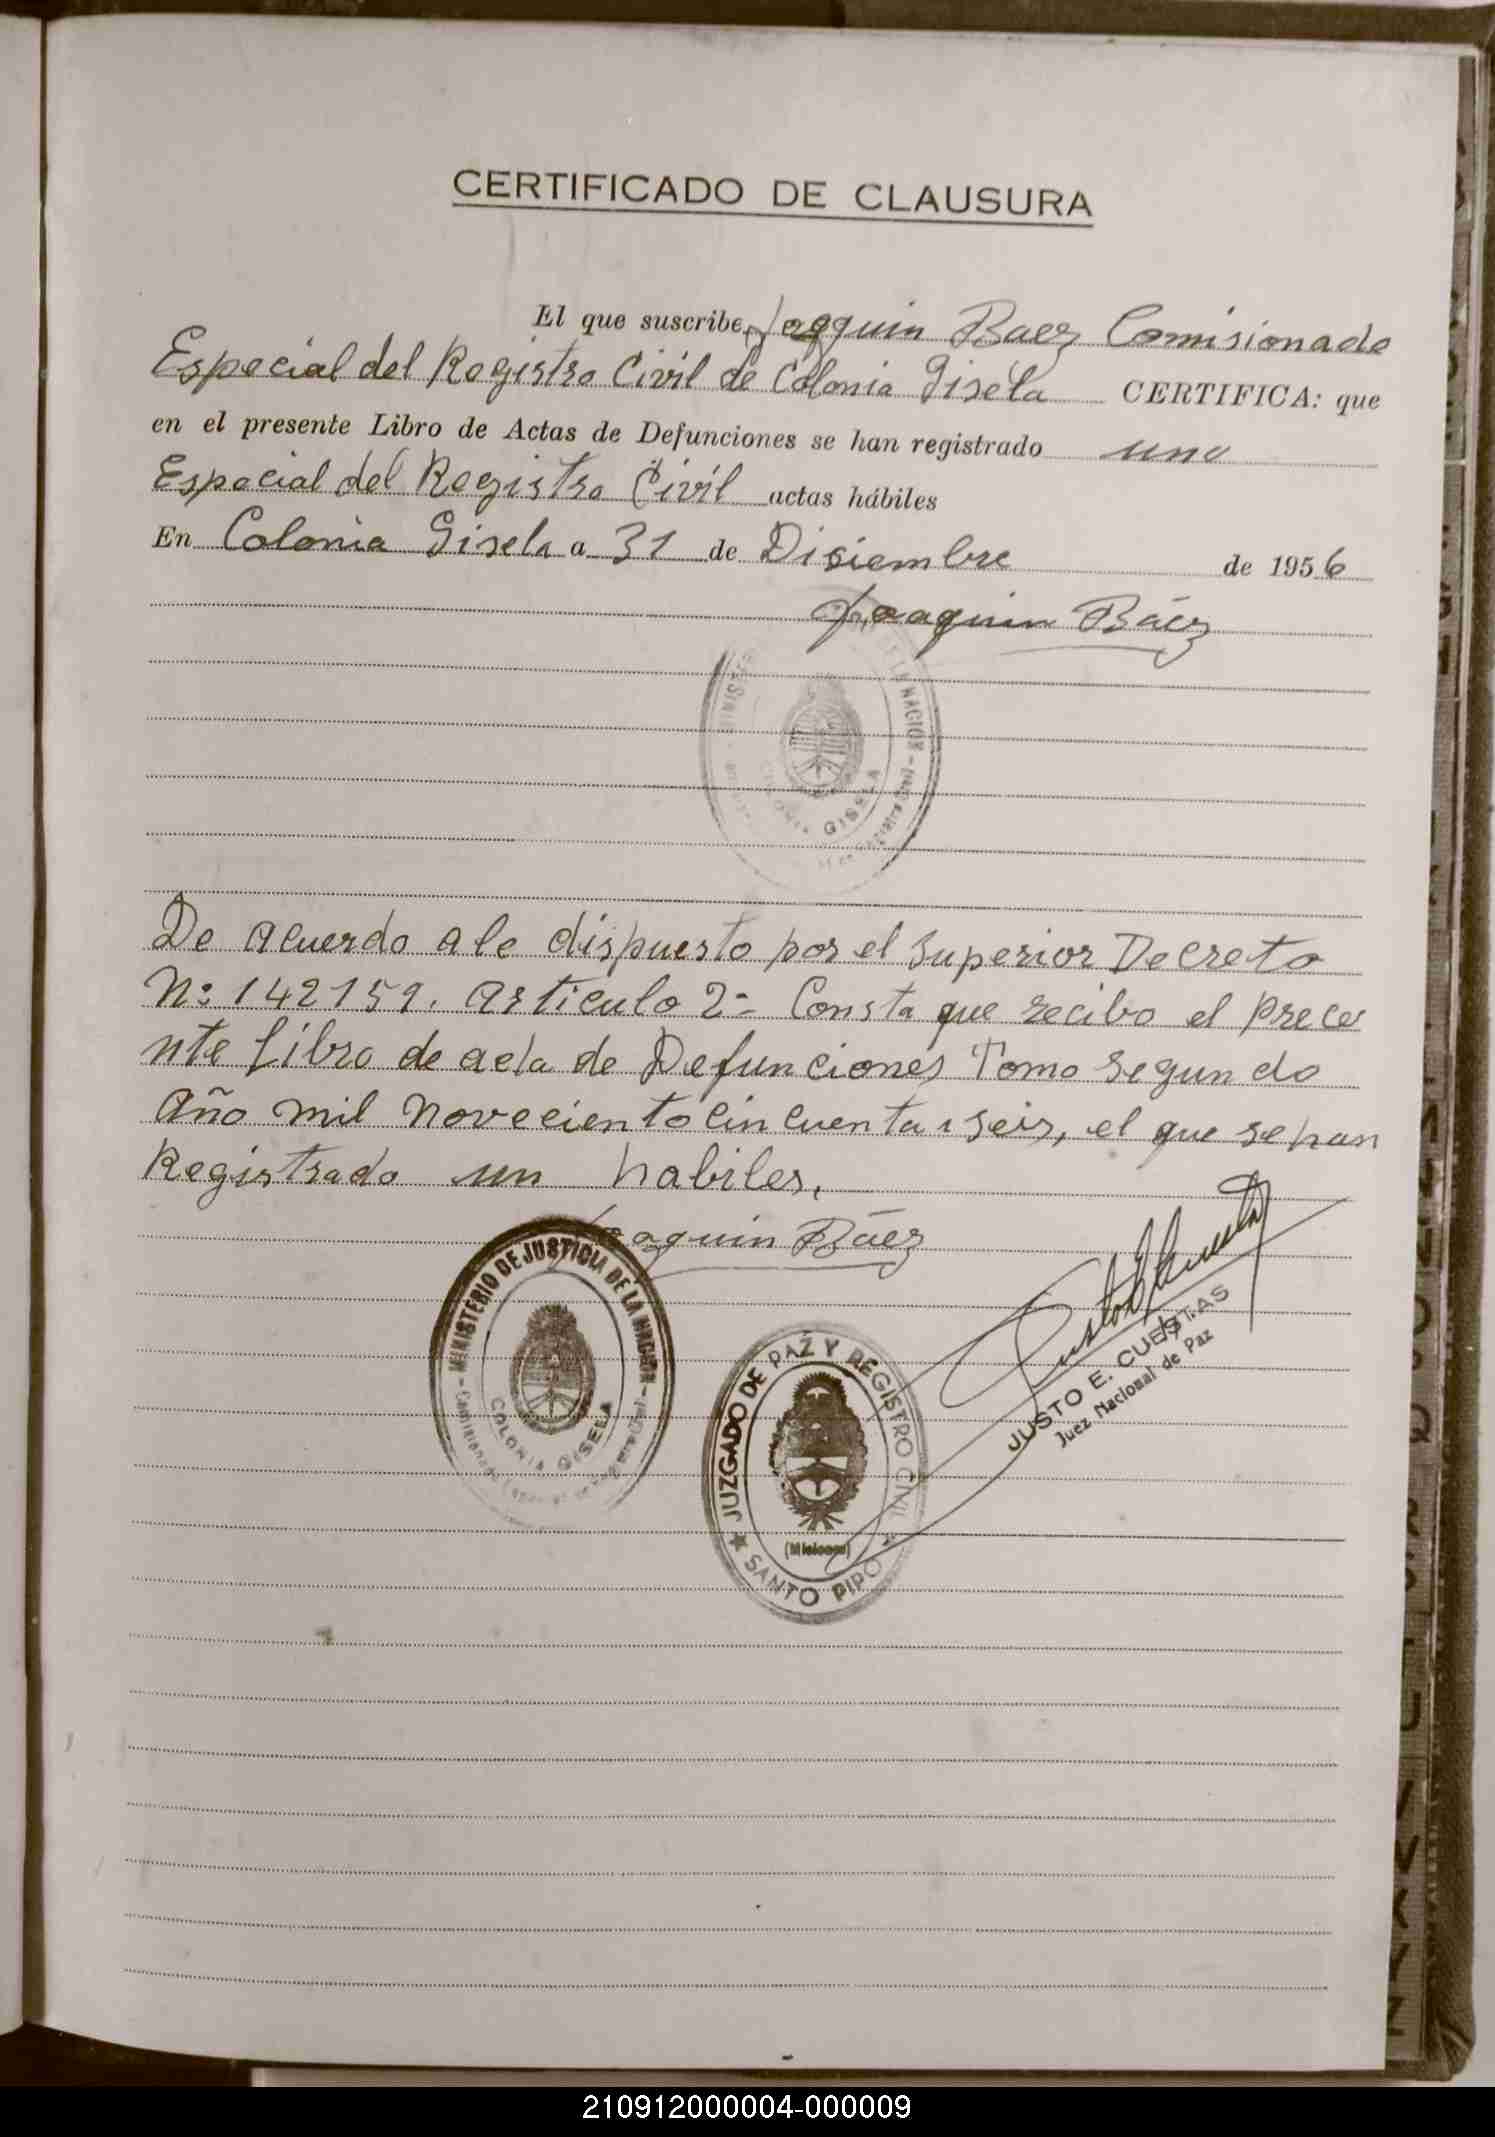 CERTIFICADO DE CLAUSURA
El que suscribe Joaquin Baez Comisionado
Especial del Registro Civil de Colonia Gisela CERTIFICA: que
en el presente Libro de Actas de Defunciones se han registrado uno
Especial del Registro Civil actas hábiles
En Colonia Gisela a 31 de Disiembre de 1956
Joaquin Báez
DE LA NACION
COLONIA GISELA
De acuerdo a lo dispuesto por el Superior Decreto
Nº 142159. Articulo 2= Consta que recibo el prece
nte Libro de acta de Defunciones Tomo Segundo
Año mil novecientocincuenta i seis, el que se han
Registrado un habiles.
Joaquin Báez
MINISTERIO DE JUSTICIA DE LA NACION
COLONIA GISELA
JUZGADO DE PAZ Y REGISTRO CIVIL
(Misiones)
SANTO PIPO
Justo E. Cuestas
JUSTO E. CUESTAS
Juez Nacional de Paz
210912000004-000009